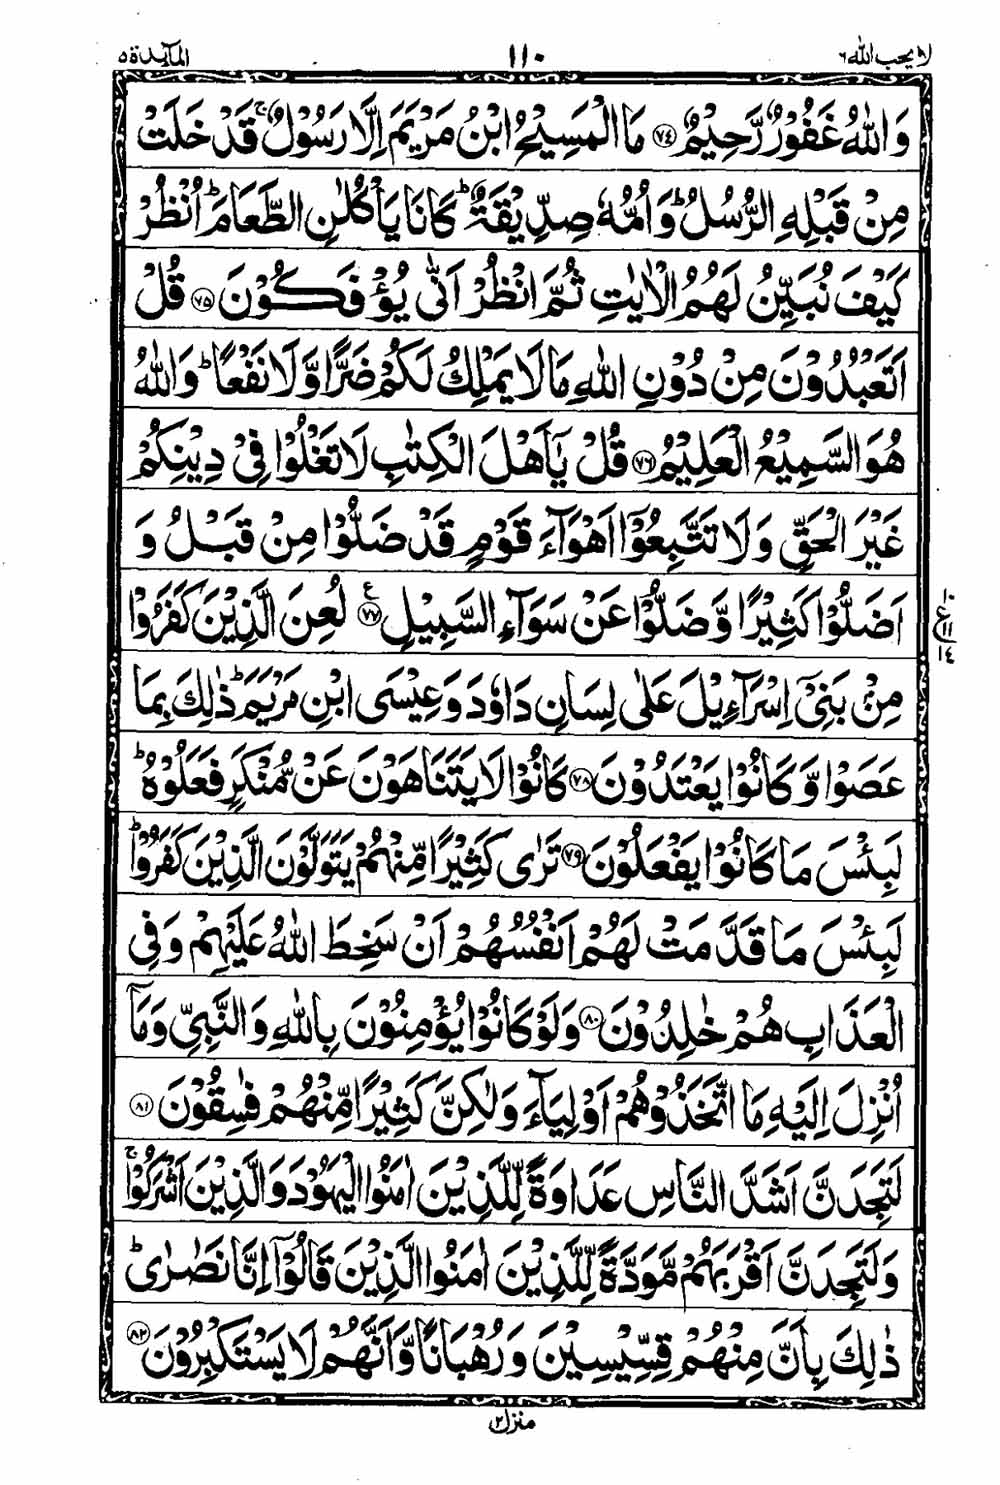 لا یحب الله ٦
١١٠
المآىِٕدة ٥
وَاللّٰهُ غَفُوْرٌ رَّحِيْمٌ ﴿٧٤﴾ مَا الْمَسِيْحُ ابْنُ مَرْيَمَ اِلَّا رَسُوْلٌ ۚ قَدْ خَلَتْ
مِنْ قَبْلِهِ الرُّسُلُ ؕ وَاُمُّهٗ صِدِّيْقَةٌ ؕ كَانَا يَاْكُلٰنِ الطَّعَامَ ؕ اُنْظُرْ
كَيْفَ نُبَيِّنُ لَهُمُ الْاٰيٰتِ ثُمَّ انْظُرْ اَنّٰى يُؤْفَكُوْنَ ﴿٧٥﴾ قُلْ
اَتَعْبُدُوْنَ مِنْ دُوْنِ اللّٰهِ مَا لَا يَمْلِكُ لَكُمْ ضَرًّا وَّلَا نَفْعًا ؕ وَاللّٰهُ
هُوَ السَّمِيْعُ الْعَلِيْمُ ﴿٧٦﴾ قُلْ يٰۤاَهْلَ الْكِتٰبِ لَا تَغْلُوْا فِيْ دِيْنِكُمْ
غَيْرَ الْحَقِّ وَلَا تَتَّبِعُوْۤا اَهْوَآءَ قَوْمٍ قَدْ ضَلُّوْا مِنْ قَبْلُ وَ
اَضَلُّوْا كَثِيْرًا وَّضَلُّوْا عَنْ سَوَآءِ السَّبِيْلِ ﴿٧٧﴾ ع لُعِنَ الَّذِيْنَ كَفَرُوْا
١٠
ع ١١
١٤
مِنْۢ بَنِيْۤ اِسْرَآءِيْلَ عَلٰى لِسَانِ دَاوٗدَ وَعِيْسَى ابْنِ مَرْيَمَ ؕ ذٰلِكَ بِمَا
عَصَوْا وَّكَانُوْا يَعْتَدُوْنَ ﴿٧٨﴾ كَانُوْا لَا يَتَنَاهَوْنَ عَنْ مُّنْكَرٍ فَعَلُوْهُ ؕ
لَبِئْسَ مَا كَانُوْا يَفْعَلُوْنَ ﴿٧٩﴾ تَرٰى كَثِيْرًا مِّنْهُمْ يَتَوَلَّوْنَ الَّذِيْنَ كَفَرُوْا ؕ
لَبِئْسَ مَا قَدَّمَتْ لَهُمْ اَنْفُسُهُمْ اَنْ سَخِطَ اللّٰهُ عَلَيْهِمْ وَفِي
الْعَذَابِ هُمْ خٰلِدُوْنَ ﴿٨٠﴾ وَلَوْ كَانُوْا يُؤْمِنُوْنَ بِاللّٰهِ وَالنَّبِيِّ وَمَاۤ
اُنْزِلَ اِلَيْهِ مَا اتَّخَذُوْهُمْ اَوْلِيَآءَ وَلٰكِنَّ كَثِيْرًا مِّنْهُمْ فٰسِقُوْنَ ﴿٨١﴾
لَتَجِدَنَّ اَشَدَّ النَّاسِ عَدَاوَةً لِّلَّذِيْنَ اٰمَنُوا الْيَهُوْدَ وَالَّذِيْنَ اَشْرَكُوْا ۚ
وَلَتَجِدَنَّ اَقْرَبَهُمْ مَّوَدَّةً لِّلَّذِيْنَ اٰمَنُوا الَّذِيْنَ قَالُوْۤا اِنَّا نَصٰرٰى ؕ
ذٰلِكَ بِاَنَّ مِنْهُمْ قِسِّيْسِيْنَ وَرُهْبَانًا وَّاَنَّهُمْ لَا يَسْتَكْبِرُوْنَ ﴿٨٢﴾
منزل ٢